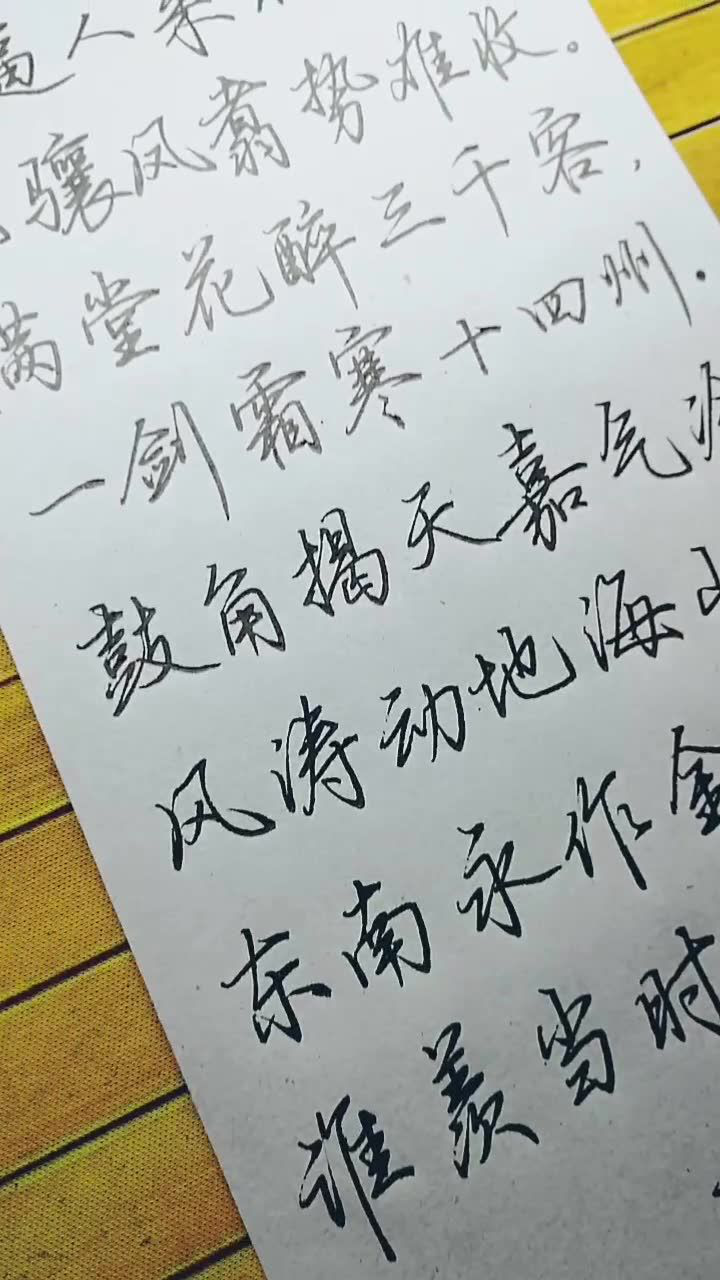 逼人来
骧风翥势难收。
满堂花醉三千客，
一剑霜寒十四州.
鼓角揭天嘉气
风涛动地海山
东南永作金
谁羡当时